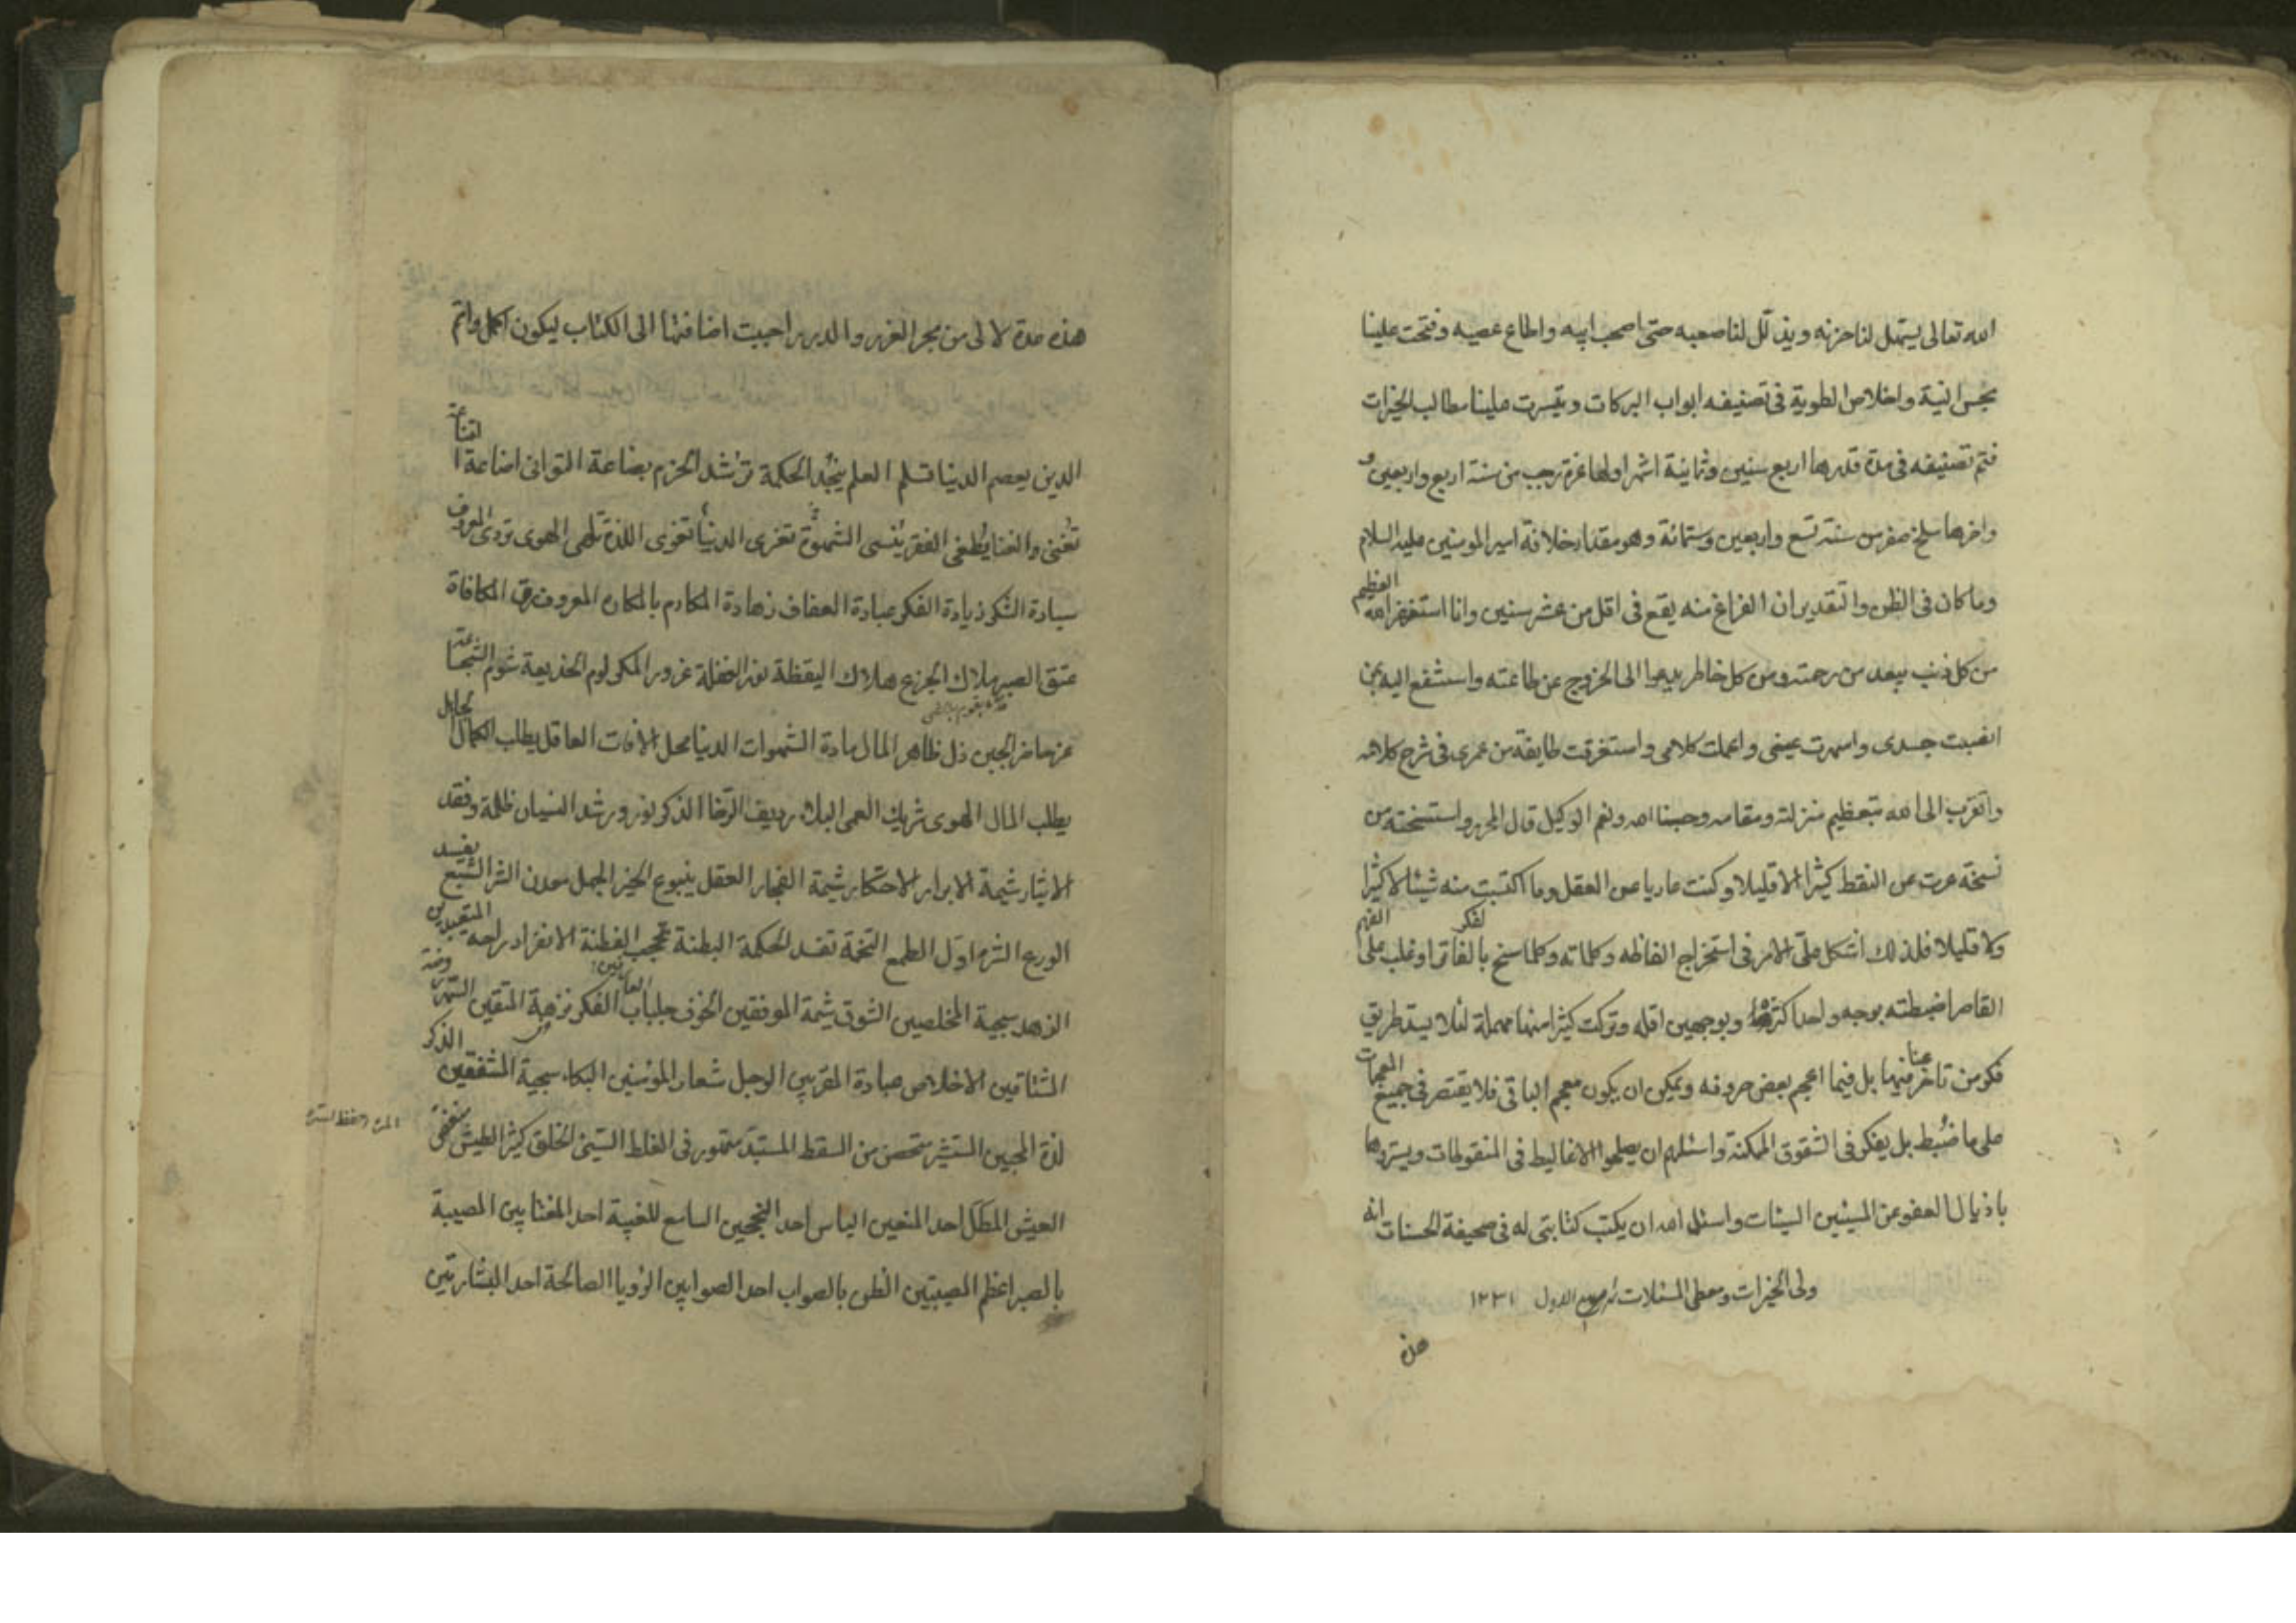 الله تعالى يسهل لنا حزنه ويذلل لنا صعبه حتى اصحب ابيه واطاع عصيه وفتحت علينا
بحسن النية واخلاص الطوية فى تصنيفه ابواب البركات وتيسرت علينا مطالب الخيرات
فتم تصنيفه فى مدة قدرها اربع سنين وثمانية اشهر اولها غرة رجب من سنة اربع واربعين و
واخرها سلخ صفر من سنة تسع واربعين وستمائة وهو مقدار خلافة امير المومنين عليه السلام
وما كان فى الظن والتقدير ان الفراغ منه يقع فى اقل من عشر سنين وانا استغفر الله العظيم
من كل ذنب يبعد من رحمته ومن كل خاطر يدعوا الى الخروج عن طاعته واستشفع اليه بمن
انصبت جسدى واسهرت عينى واعملت كلامى واستغرقت طايفة من عمرى فى شرح كلامه
واتقرب الى الله بتعظيم منزلته ومقامه وحسبنا الله ونعم الوكيل قال المحرر واستنسخته من
نسخة عرت عن النقط كثيرا الا قليلا وكنت عاريا عن العقل وما اكتسبت منه شيئا لا كثيرا
ولا قليلا فلذلك اشكل على الامر فى استخراج الفاظه وكلماته وكلما سنح بالفكر الفاتر او غلب على الفهم
القاصر اضبطته بوجه واحد اكثره وبوجهين اقله وتركت كثيرا منها مهملة لئلا يسد طريق
فكر من تاخر عنا فيها بل فيما اعجم بعض حروفه ويمكن ان يكون معجم الباقى فلا يقتصر فى جميع المعجمات
على ما ضبط بل يفكر فى الشقوق الممكنة واسئلهم ان يصلحوا الاغاليط فى المنقوطات ويستروها
باذيال العفو عن المسيئين السيئات واسئل الله ان يكتب كتابتى له فى صحيفة الحسنات انه
ولى الخيرات ومعطى المسئلات الاول ١٢٣١
هذه
هذه عدة لالى من بحر الغرر والدرر احببت اضافتها الى الكتاب ليكون اكمل واتم
الدين يعصم الدنيا تسلم العلم ينجد الحكمة ترشد الحزم بضاعة التوانى اضاعة القناعة
تغنى والغنا يطغى الفقر ينسى الشهوة تغرى الدنيا تغوى اللذة تلهى الهوى تردى المعروف
سيادة الشكر زيادة الفكر عبادة العفاف زهادة المكارم بالمكاره المعروف رق المكافاة
عتق الصبر ملاك الجزع هلاك اليقظة نور الغفلة غرور المكر لوم الخديعة شوم الشجاعة
عز حاضر الجبن ذل ظاهر المال مادة الشهوات الدنيا محل الافات العاقل يطلب الكمال الجاهل
يطلب المال الهوى شريك العمى البلاء رديف الرخا الذكر نور ورشد النسيان ظلمة وفقد
الايثار شيمة الابرار الاحتكار شيمة الفجار العقل ينبوع الخير الجهل معدن الشر الشبع يفسد
الورع الشره اول الطمع التخمة تفسد الحكمة البطنة تحجب الفطنة الانفراد راحة المتعبدين
الزهد سجية المخلصين الشوق شيمة الموقنين الخوف جلباب العارفين الفكر نزهة المتقين السهر روضة
المشتاقين الاخلاص عبادة المقربين الوجل شعار المومنين البكاء سجية المشفقين الذكر
لذة المحبين المستشير متحصن من السقط المستبد متهور فى الغلط السيئ الخلق كثير الطيش منغص
العيش المطل احد المنعين الياس احد النجحين السامع للغيبة احد المغتابين المصيبة
بالصبر اعظم المصيبتين الظن بالصواب احد الصوابين الرؤيا الصالحة احد البشارتين